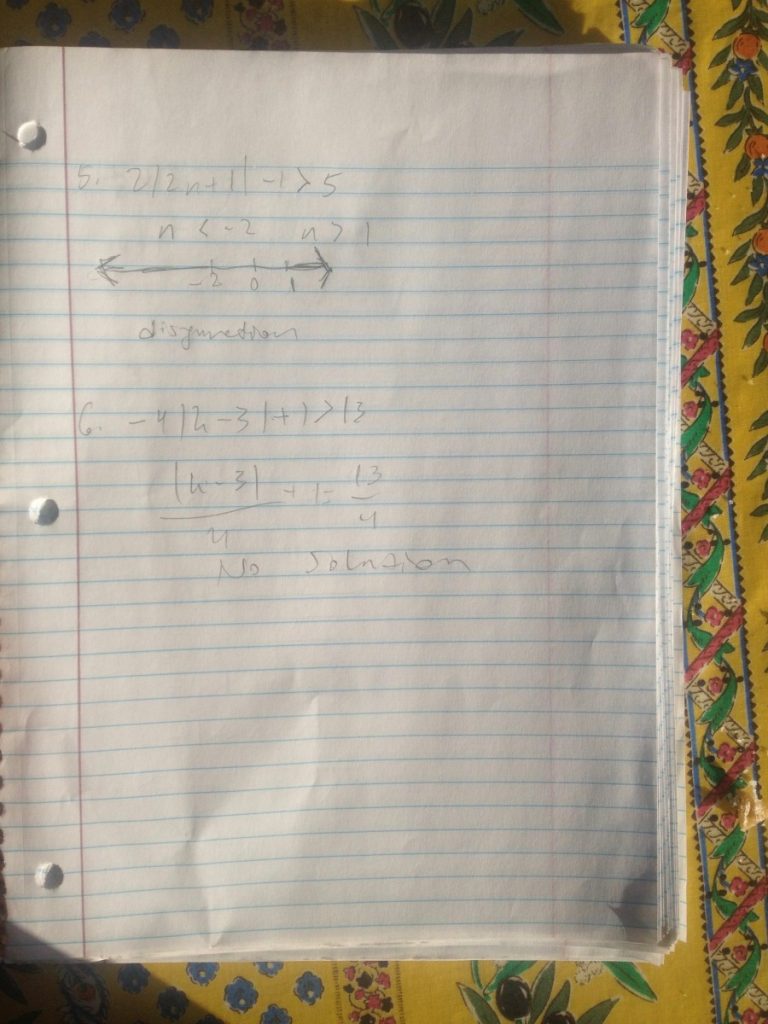 5. 2|2n+1| -1 > 5
n < -2 n > 1
-2 0 1
disjunction
6. -4|n-3|+1 > 13
|n-3|
13
4
4
No Solution